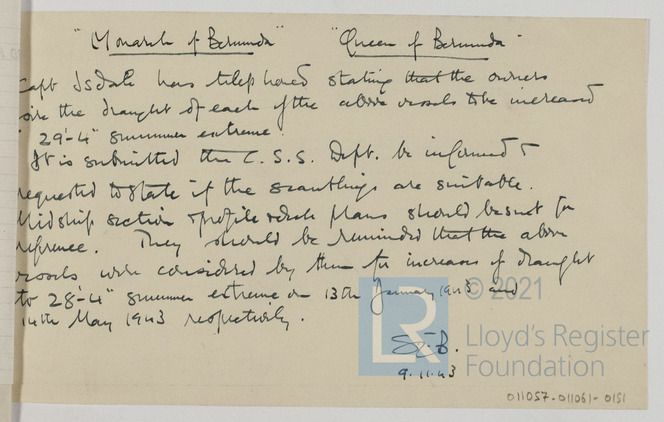 "Monarch of Bermuda" "Queen of Bermuda"
Capt Isdale has telephoned stating that the owners
the draught of each of the above vessels to be increased
29'-4" summer extreme.
It is submitted the C.S.S. Dept. be informed &
requested to state if the scantlings are suitable.
Midship section profile & deck plans should be sent for
reference. They should be reminded that the above
vessels were considered by them for increase of draught
to 28'-4" summer extreme on 13th January 1943 and
14th May 1943 respectively.
9.11.43
© 2021
LR
Lloyd's Register
Foundation
011057-011061-0151